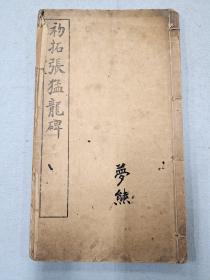 初拓張猛龍碑
夢熊